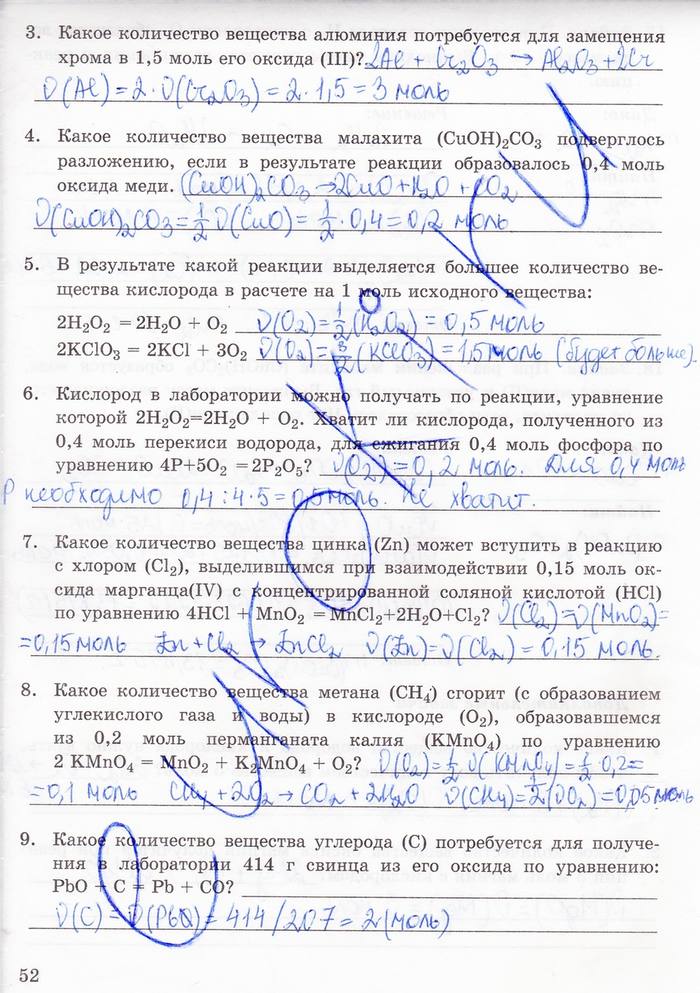 3. Какое количество вещества алюминия потребуется для замещения
хрома в 1,5 моль его оксида (III)? 2Al + Cr₂O₃ → Al₂O₃ + 2Cr
ν(Al) = 2·ν(Cr₂O₃) = 2·1,5 = 3 моль
4. Какое количество вещества малахита (CuOH)₂CO₃ подверглось
разложению, если в результате реакции образовалось 0,4 моль
оксида меди. (CuOH)₂CO₃ → 2CuO + H₂O + CO₂
ν(CuOH)₂CO₃ = 1/2 ν(CuO) = 1/2 · 0,4 = 0,2 моль
5. В результате какой реакции выделяется большее количество ве-
щества кислорода в расчете на 1 моль исходного вещества:
2H₂O₂ = 2H₂O + O₂ ν(O₂) = 1/2 (H₂O₂) = 0,5 моль
2KClO₃ = 2KCl + 3O₂ ν(O₂) = 3/2 (KClO₃) = 1,5 моль (будет больше).
6. Кислород в лаборатории можно получать по реакции, уравнение
которой 2H₂O₂=2H₂O + O₂. Хватит ли кислорода, полученного из
0,4 моль перекиси водорода, для сжигания 0,4 моль фосфора по
уравнению 4P+5O₂ =2P₂O₅? ν(O₂) = 0,2 моль. Для 0,4 моль
P необходимо 0,4 : 4 · 5 = 0,5 моль. Не хватит.
7. Какое количество вещества цинка (Zn) может вступить в реакцию
с хлором (Cl₂), выделившимся при взаимодействии 0,15 моль ок-
сида марганца(IV) с концентрированной соляной кислотой (HCl)
по уравнению 4HCl + MnO₂ = MnCl₂+2H₂O+Cl₂? ν(Cl₂) = ν(MnO₂) =
= 0,15 моль Zn + Cl₂ → ZnCl₂ ν(Zn) = ν(Cl₂) = 0,15 моль.
8. Какое количество вещества метана (CH₄) сгорит (с образованием
углекислого газа и воды) в кислороде (O₂), образовавшемся
из 0,2 моль перманганата калия (KMnO₄) по уравнению
2 KMnO₄ = MnO₂ + K₂MnO₄ + O₂? ν(O₂) = 1/2 ν(KMnO₄) = 1/2 · 0,2 =
= 0,1 моль CH₄ + 2O₂ → CO₂ + 2H₂O ν(CH₄) = 1/2 (νO₂) = 0,05 моль
9. Какое количество вещества углерода (C) потребуется для получе-
ния в лаборатории 414 г свинца из его оксида по уравнению:
PbO + C = Pb + CO?
ν(C) = ν(PbO) = 414/207 = 2 (моль)
52